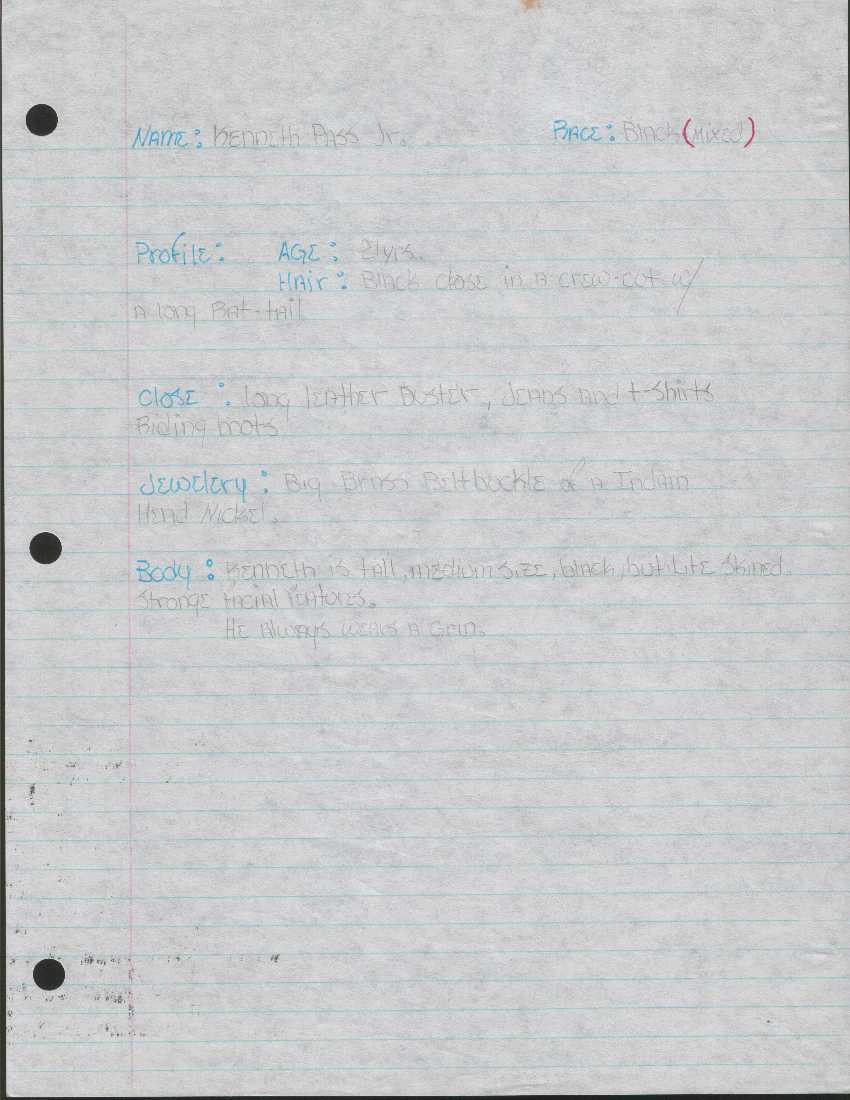 NAME: Kenneth Pass Jr. RACE: Black (mixed)
Profile: AGE: 21yrs.
Hair: Black close in a crew-cut w/
a long Rat-tail
Close: long leather Duster, Jeans and t-shirts
Riding boots
Jewelery: Big Brass Beltbuckle of a Indain
Head Nickel.
Body: Kenneth is tall, medium size, black, but lite skined.
Stronge facial features.
He always wears a Grin.